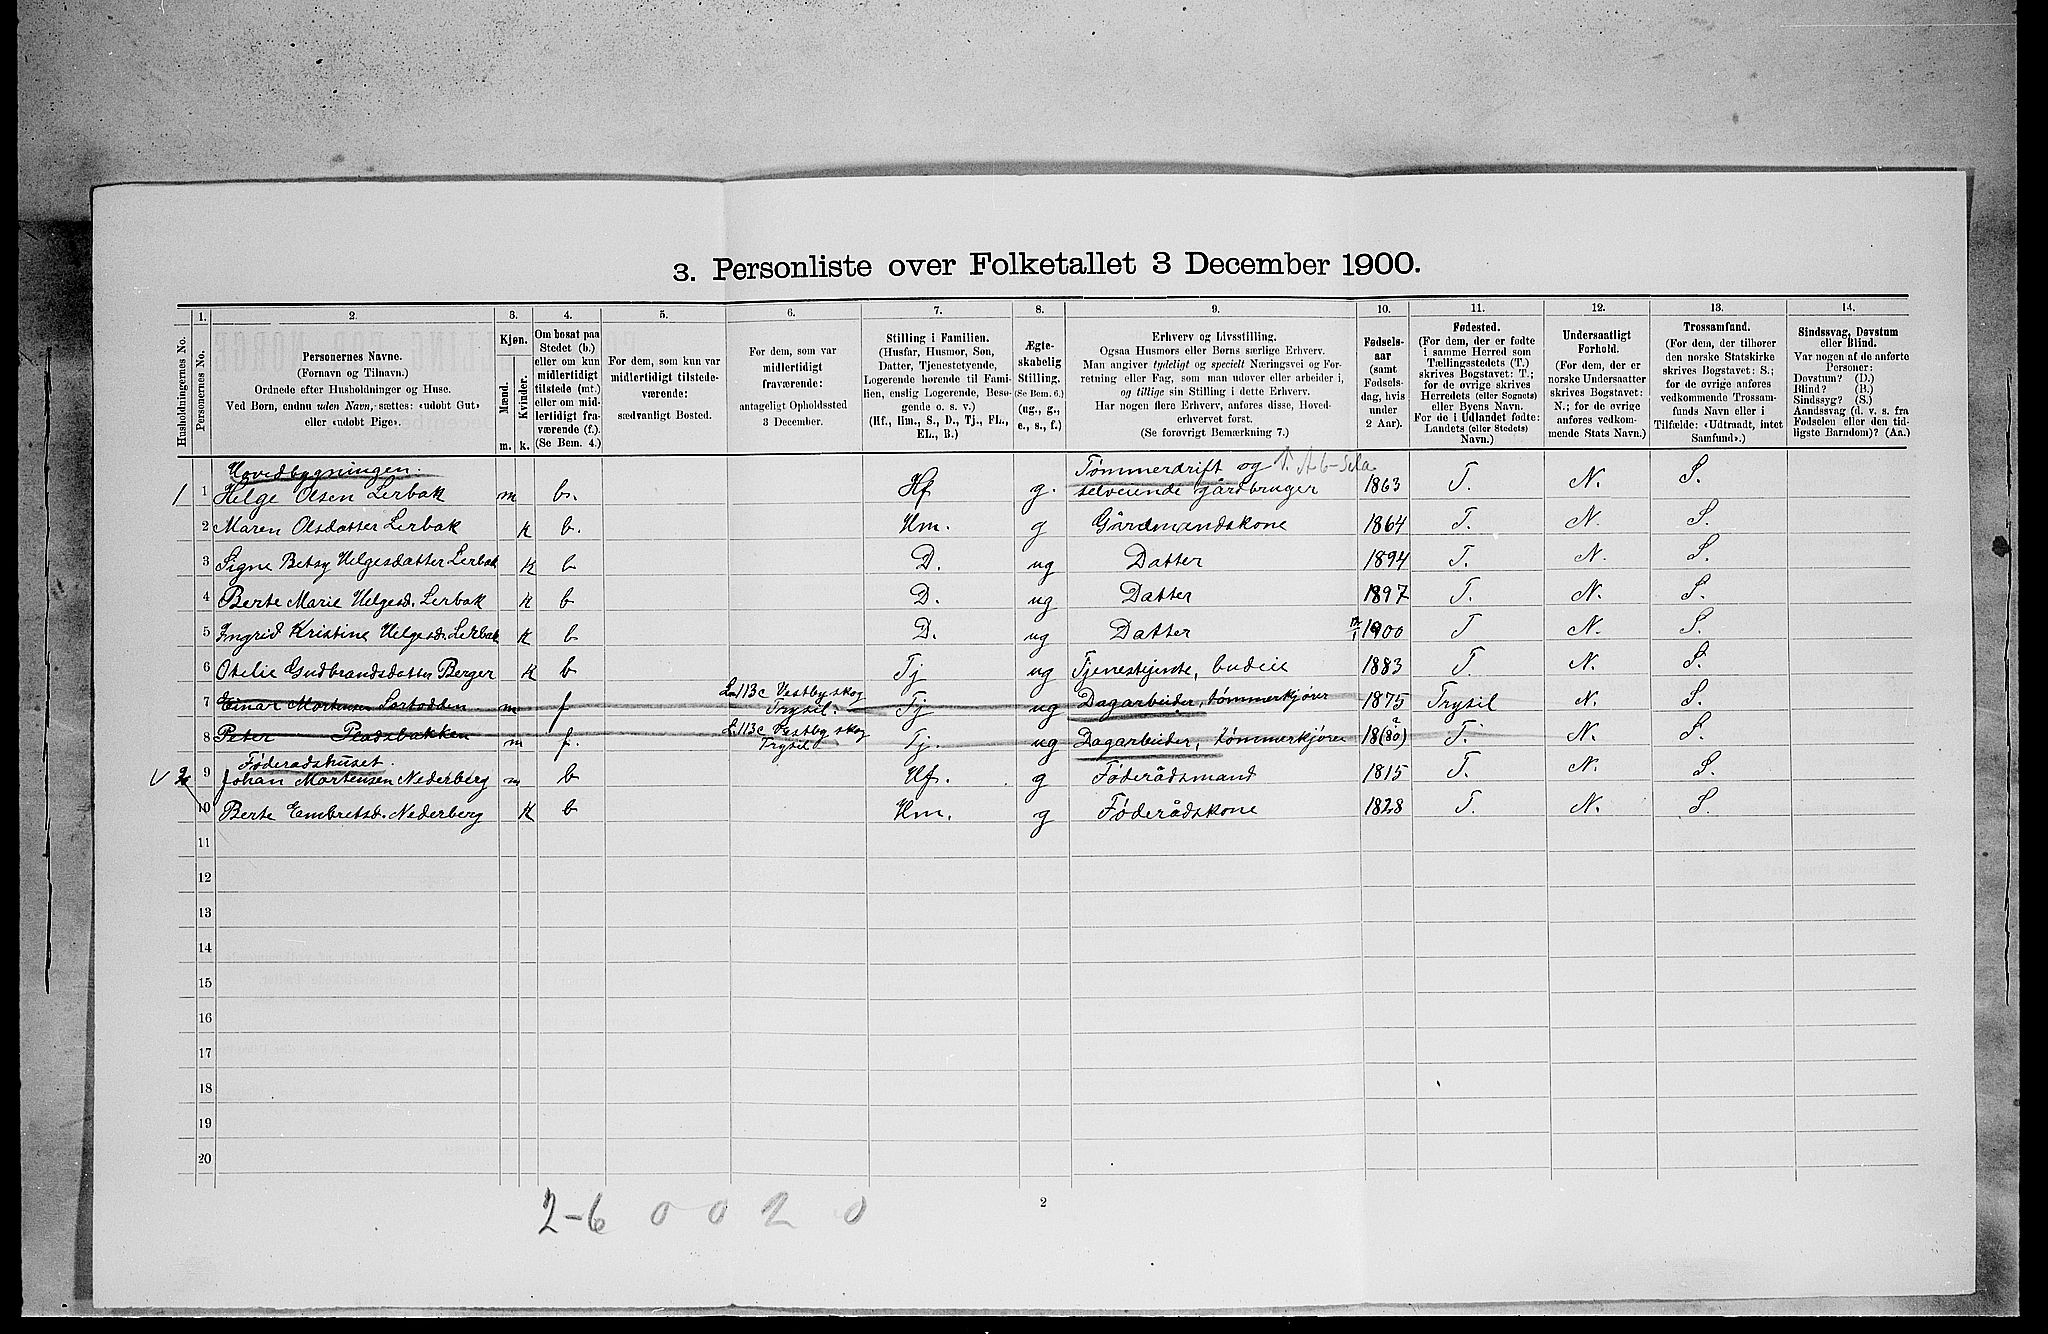 3. Personliste over Folketallet 3 December 1900.
1. 2. 3. 4. 5. 6. 7. 8. 9. 10. 11. 12. 13. 14.
Husholdningernes No.
Personernes No.
Personernes Navne.
(Fornavn og Tilnavn.)
Ordnede efter Husholdninger og Huse.
Ved Børn, endnu uden Navn, sættes: «udøbt Gut»
eller «udøbt Pige».
Kjøn.
Mænd.
Kvinder.
m. k.
Om bosat paa
Stedet (b.)
eller om kun
midlertidigt
tilstede (mt.)
eller om mid-
lertidigt fra-
værende (f.).
(Se Bem. 4.)
For dem, som kun var
midlertidigt tilstede-
værende:
sædvanligt Bosted.
For dem, som var
midlertidigt
fraværende:
antageligt Opholdssted
3 December.
Stilling i Familien.
(Husfar, Husmor, Søn,
Datter, Tjenestetyende,
Logerende hørende til Fami-
lien, enslig Logerende, Besø-
gende o. s. v.)
(Hf., Hm., S., D., Tj., FL.,
EL., B.)
Ægte-
skabelig
Stilling.
(Se Bem. 6.)
(ug., g.,
e., s., f.)
Erhverv og Livsstilling.
Ogsaa Husmors eller Børns særlige Erhverv.
Man angiver tydeligt og specielt Næringsvei og For-
retning eller Fag, som man udøver eller arbeider i,
og tillige sin Stilling i dette Erhverv.
Har nogen flere Erhverv, anføres disse, Hoved-
erhvervet først.
(Se forøvrigt Bemærkning 7.)
Fødsels-
aar
(samt
Fødsels-
dag, hvis
under
2 Aar).
Fødested.
(For dem, der er fødte
i samme Herred som
Tællingsstedets (T.)
skrives Bogstavet: T.;
for de øvrige skrives
Herredets (eller Sognets)
eller Byens Navn.
For de i Udlandet fødte:
Landets (eller Stedets)
Navn.)
Undersaatligt
Forhold.
(For dem, der er
norske Undersaatter
skrives Bogstavet:
N.; for de øvrige
anføres vedkom-
mende Stats Navn.)
Trossamfund.
(For dem, der tilhører
den norske Statskirke
skrives Bogstavet: S.;
for de øvrige anføres
vedkommende Trossam-
funds Navn eller i
Tilfælde: «Udtraadt, intet
Samfund».)
Sindssvag, Døvstum
eller Blind.
Var nogen af de anførte
Personer:
Døvstum? (D.)
Blind? (B.)
Sindssyg? (S.)
Aandssvag (d. v. s. fra
Fødselen eller den tid-
ligste Barndom)? (Aa.)
Hovedbygningen. Tømmerdrift og
1 1 Helge Olsen Lerbak m b. Hf g. selveiende gårdbruger 1863 T. N. S.
2 Maren Olsdatter Lerbak k b. Hm. g Gårdmandskone 1864 T. N. S.
3 Signe Betsy Helgesdatter Lerbak k b D. ug Datter 1894 T. N. S.
4 Berte Marie Helgesd. Lerbak k b D. ug Datter 1897 T. N. S.
5 Ingrid Kristine Helgesd. Lerbak k b D. ug Datter 1900 T N. S.
6 Otelie Gudbrandsdatter Berger k b Tj ug Tjenestejente, budeie 1883 T. N. S.
7 Einar Mortensen Sorhodden m f L.113c Vestby skog
Trysil. Tj ug Dagarbeider, tømmerkjører 1875 Trysil N. S.
8 Peter Pladsbakken m f. L.113c Vestby skog
Trysil Tj. ug Dagarbeider, tømmerkjører 18(80)? T. N. S.
Føderadshuset.
2 9 Johan Mortensen Nederberg m b Hf. g Føderådsmand 1815 T. N. S.
10 Berte Embretsd. Nederberg k b Hm. g Føderådskone 1828 T. N. S.
11
12
13
14
15
16
17
18
19
20
2
2-6 0 0 2 0